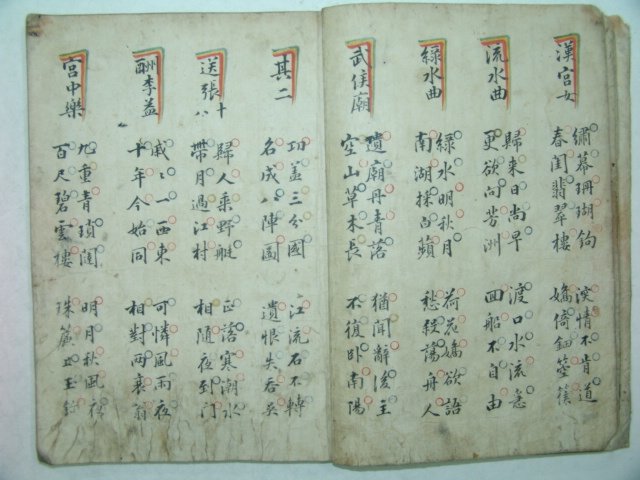 漢宮女
繡幕珊瑚鉤
春闺翡翠樓
深情不肯道
嬌倚鈿箜篌
流水曲
歸来日尚早
更欲向芳洲
渡口水流急
回船不自由
綠水曲
綠水明秋月
南湖採白蘋
荷花嬌欲語
愁殺蕩舟人
武侯廟
遺廟丹青落
空山草木長
猶聞辭後主
不復卧南陽
其二
功盖三分國
名成八陣圖
江流石不轉
遺恨失吞吳
送張十八
歸人乘野艇
帶月過江村
正落寒潮水
相隨夜到門
酬李益
戚〻一西東
十年今始同
可憐風雨夜
相對兩衰翁
宮中樂
九重青瑣闥
百尺碧雲樓
明月秋風夜
珠簾上玉鉤